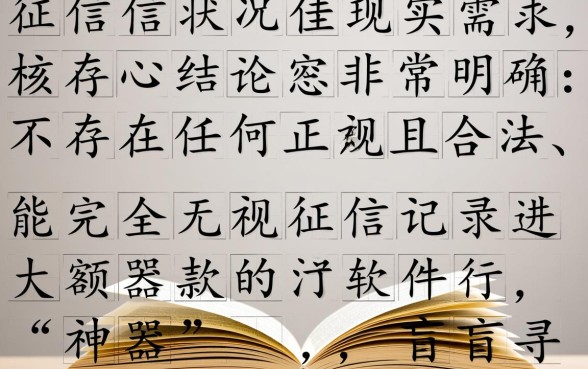 征信信状况佳现实需求，
核存心结论窓非常明确：
不存在任何正规且合法、
能完全无视征信记录进
大额器款的汓软件行，
“神器” ，，盲盲寻